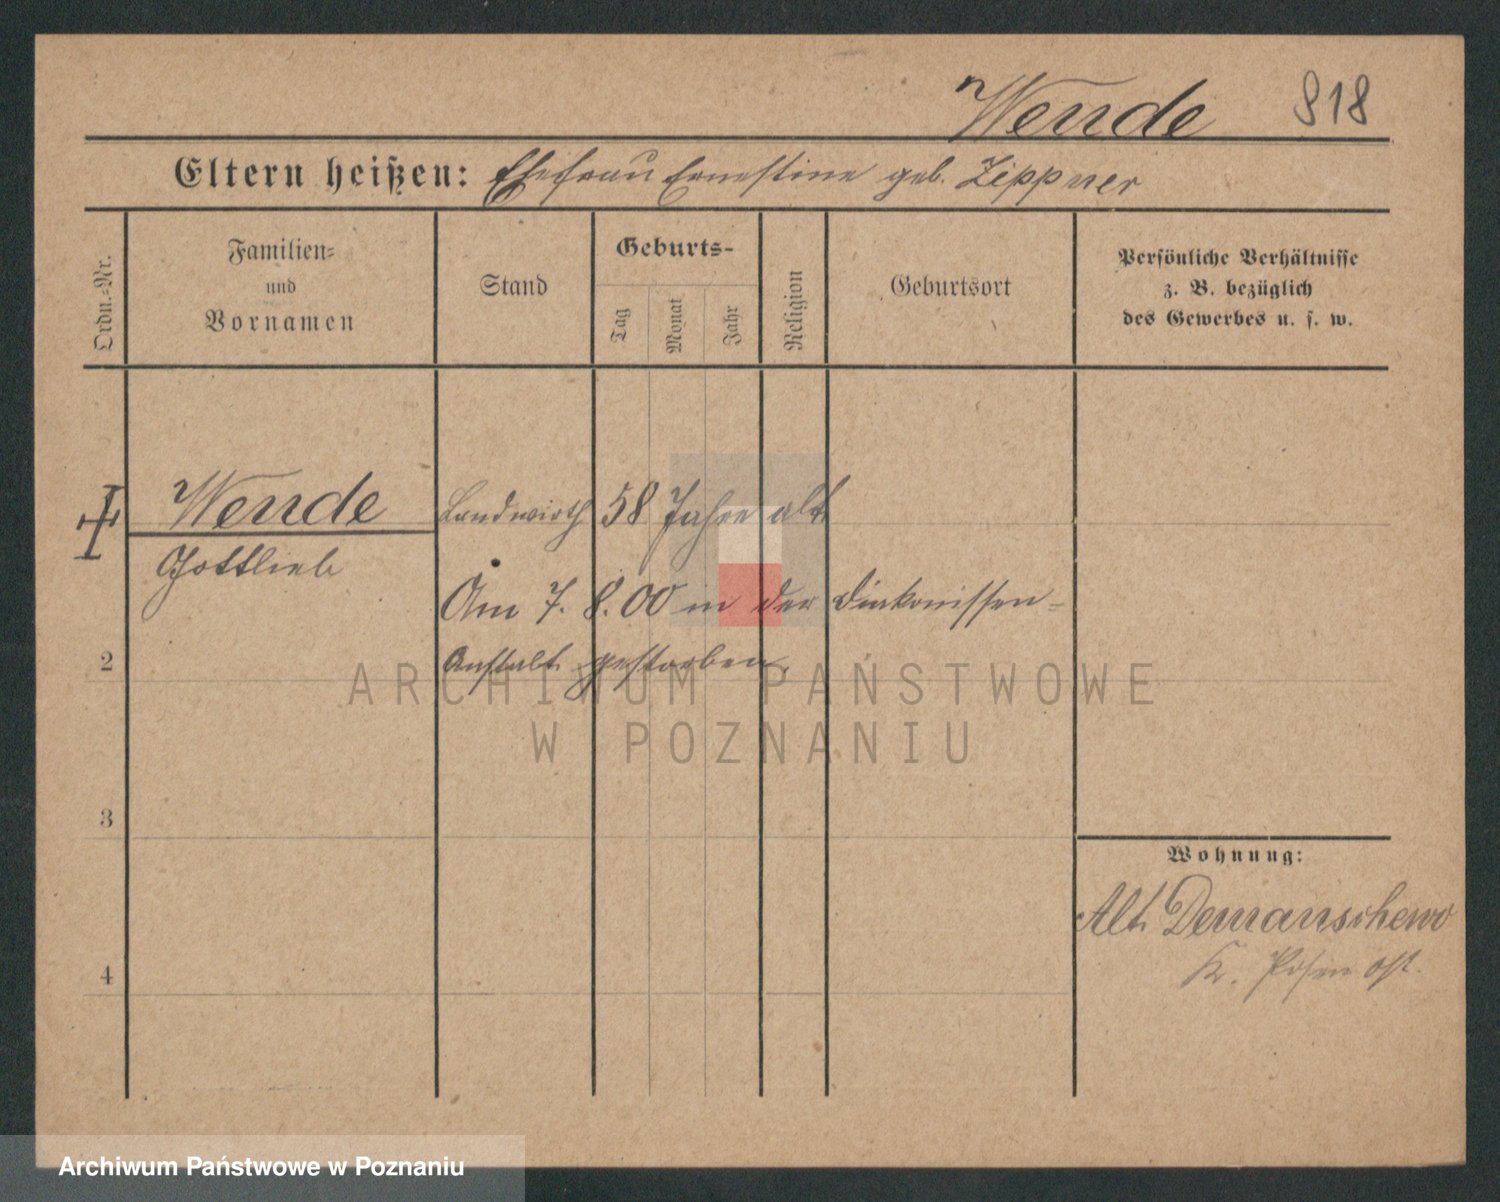 Wende 818
Eltern heißen: Ehefrau Ernestine geb. Zippner
Ordn.-Nr.
Familien-
und
Vornamen
Stand
Geburts-
Tag
Monat
Jahr
Religion
Geburtsort
Persönliche Verhältnisse
z. B. bezüglich
des Gewerbes u. s. w.
Wende Landwirth 58 Jahre alt
Gottlieb
Am 7. 8. 00 in der Diakonissen-
2 Anstalt gestorben.
ARCHIWUM PAŃSTWOWE
W POZNANIU
3
Wohnung:
Alt Demanschewo
4 Kr. Posen Ost.
Archiwum Państwowe w Poznaniu